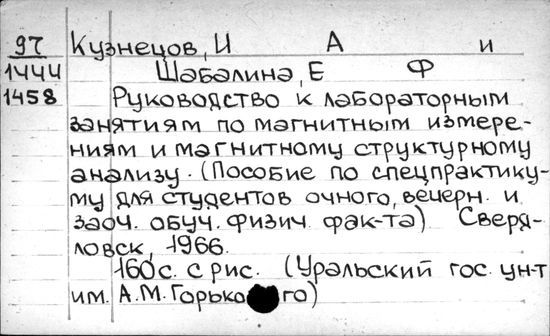 97 Кузнецов, И А и
1444 Шабалина, Е Ф
1458 Руководство к лабораторным
занятиям по магнитным измере-
ниям и магнитному структурному
анализу. (Пособие по спецпрактику-
му для студентов очного, вечерн. и
заоч. обуч. физич. фак-та) Сверд-
ловск, 1966.
160 с. с рис. (Уральский гос. ун-т
им. А.М. Горького)